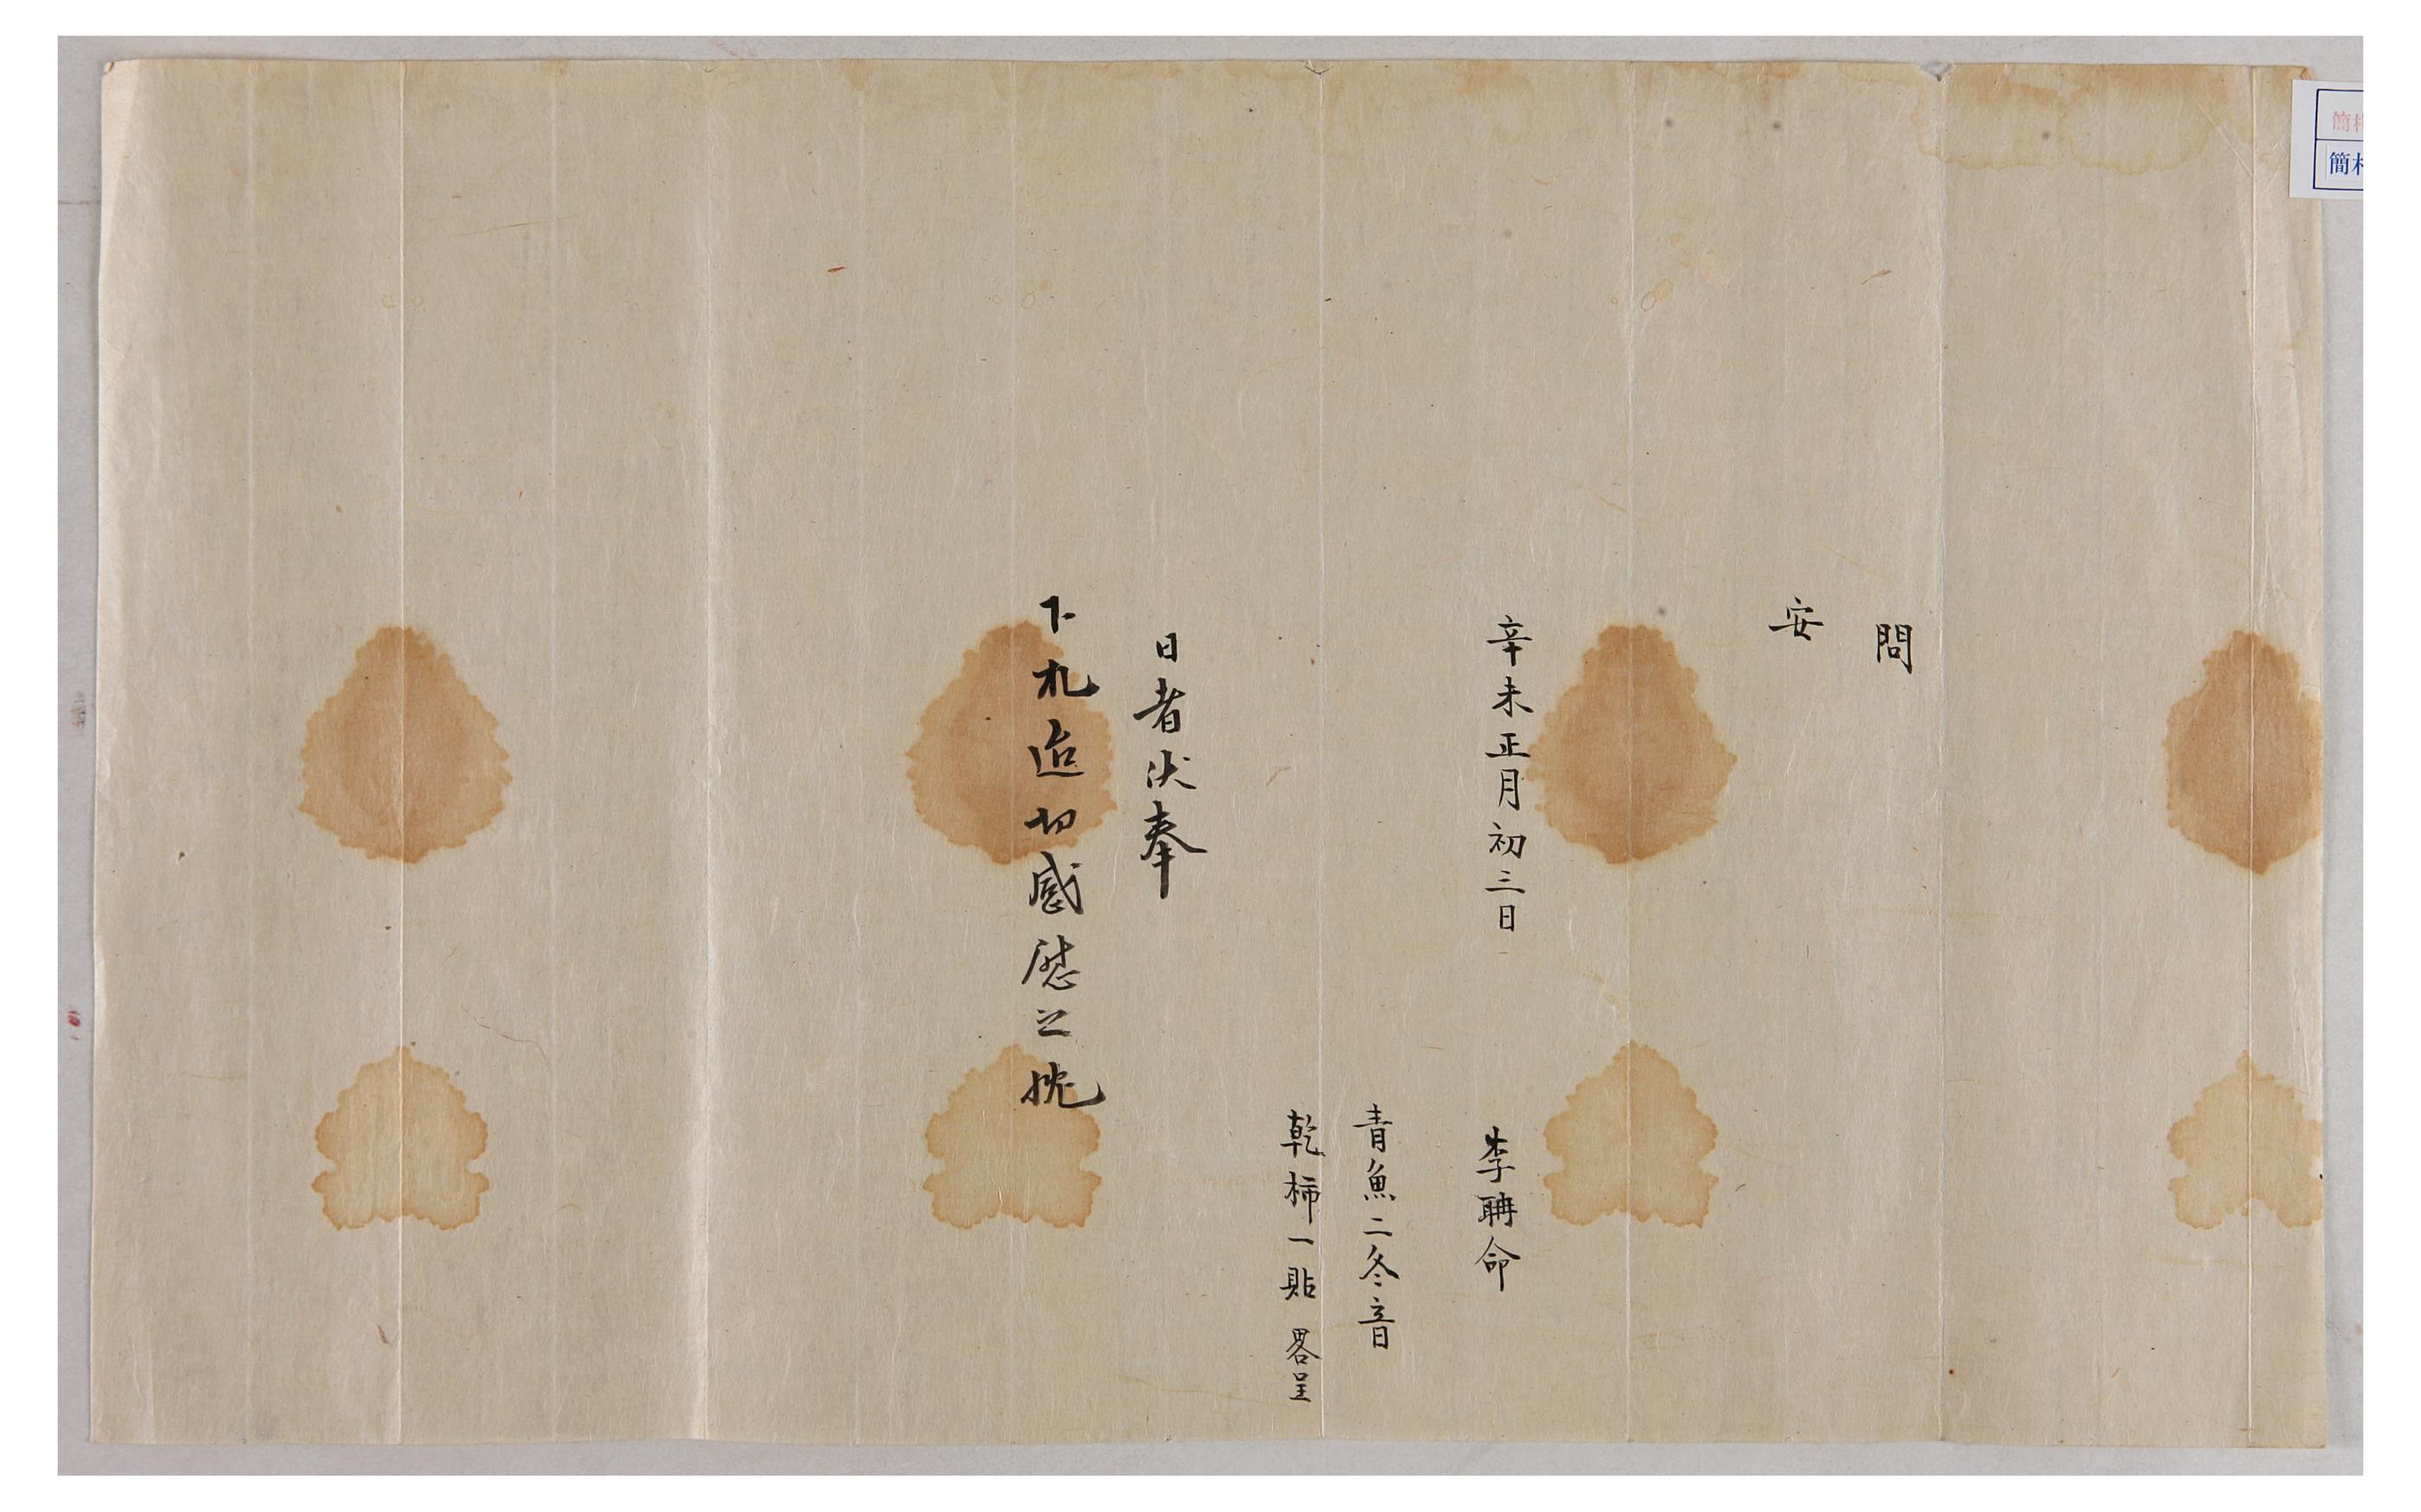 問
安
辛未正月初三日
李䎳命
青魚二冬音
乾柿一貼 畧呈
日者伏奉
下札迨切感慰之忱
簡
簡